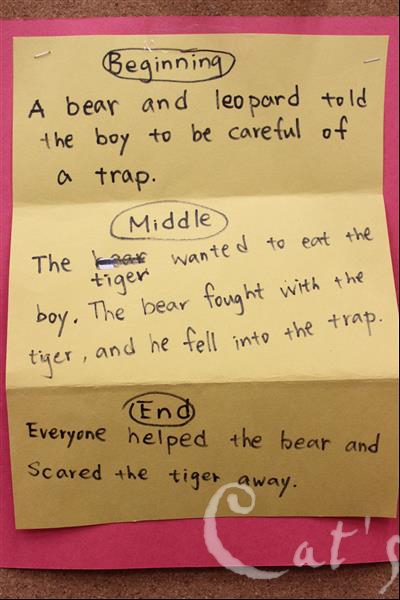 Beginning
A bear and leopard told
the boy to be careful of
a trap.
Middle
The bear wanted to eat the
tiger
boy. The bear fought with the
tiger, and he fell into the trap.
End
Everyone helped the bear and
Scared the tiger away.
Cat's